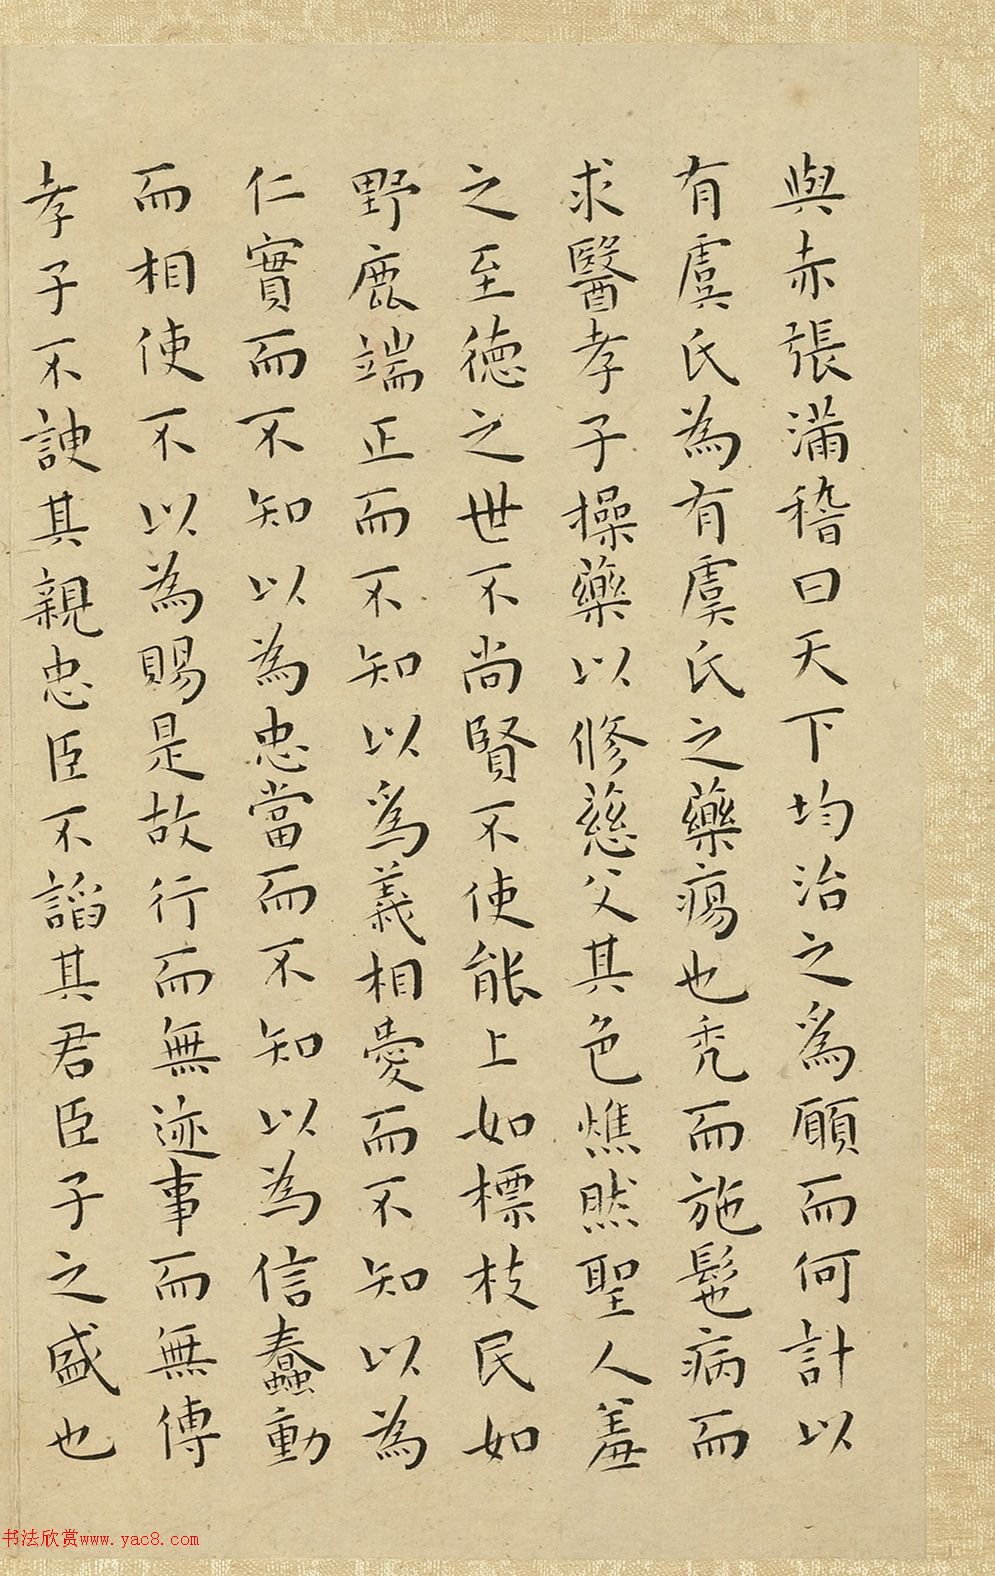 與赤張滿稽曰天下均治之爲願而何計以
有虞氏為有虞氏之藥瘍也禿而施髢病而
求醫孝子操藥以修慈父其色燋然聖人羞
之至德之世不尚賢不使能上如標枝民如
野鹿端正而不知以爲義相愛而不知以為
仁實而不知以為忠當而不知以為信蠢動
而相使不以為賜是故行而無迹事而無傳
孝子不諛其親忠臣不諂其君臣子之盛也
书法欣赏www.yac8.com